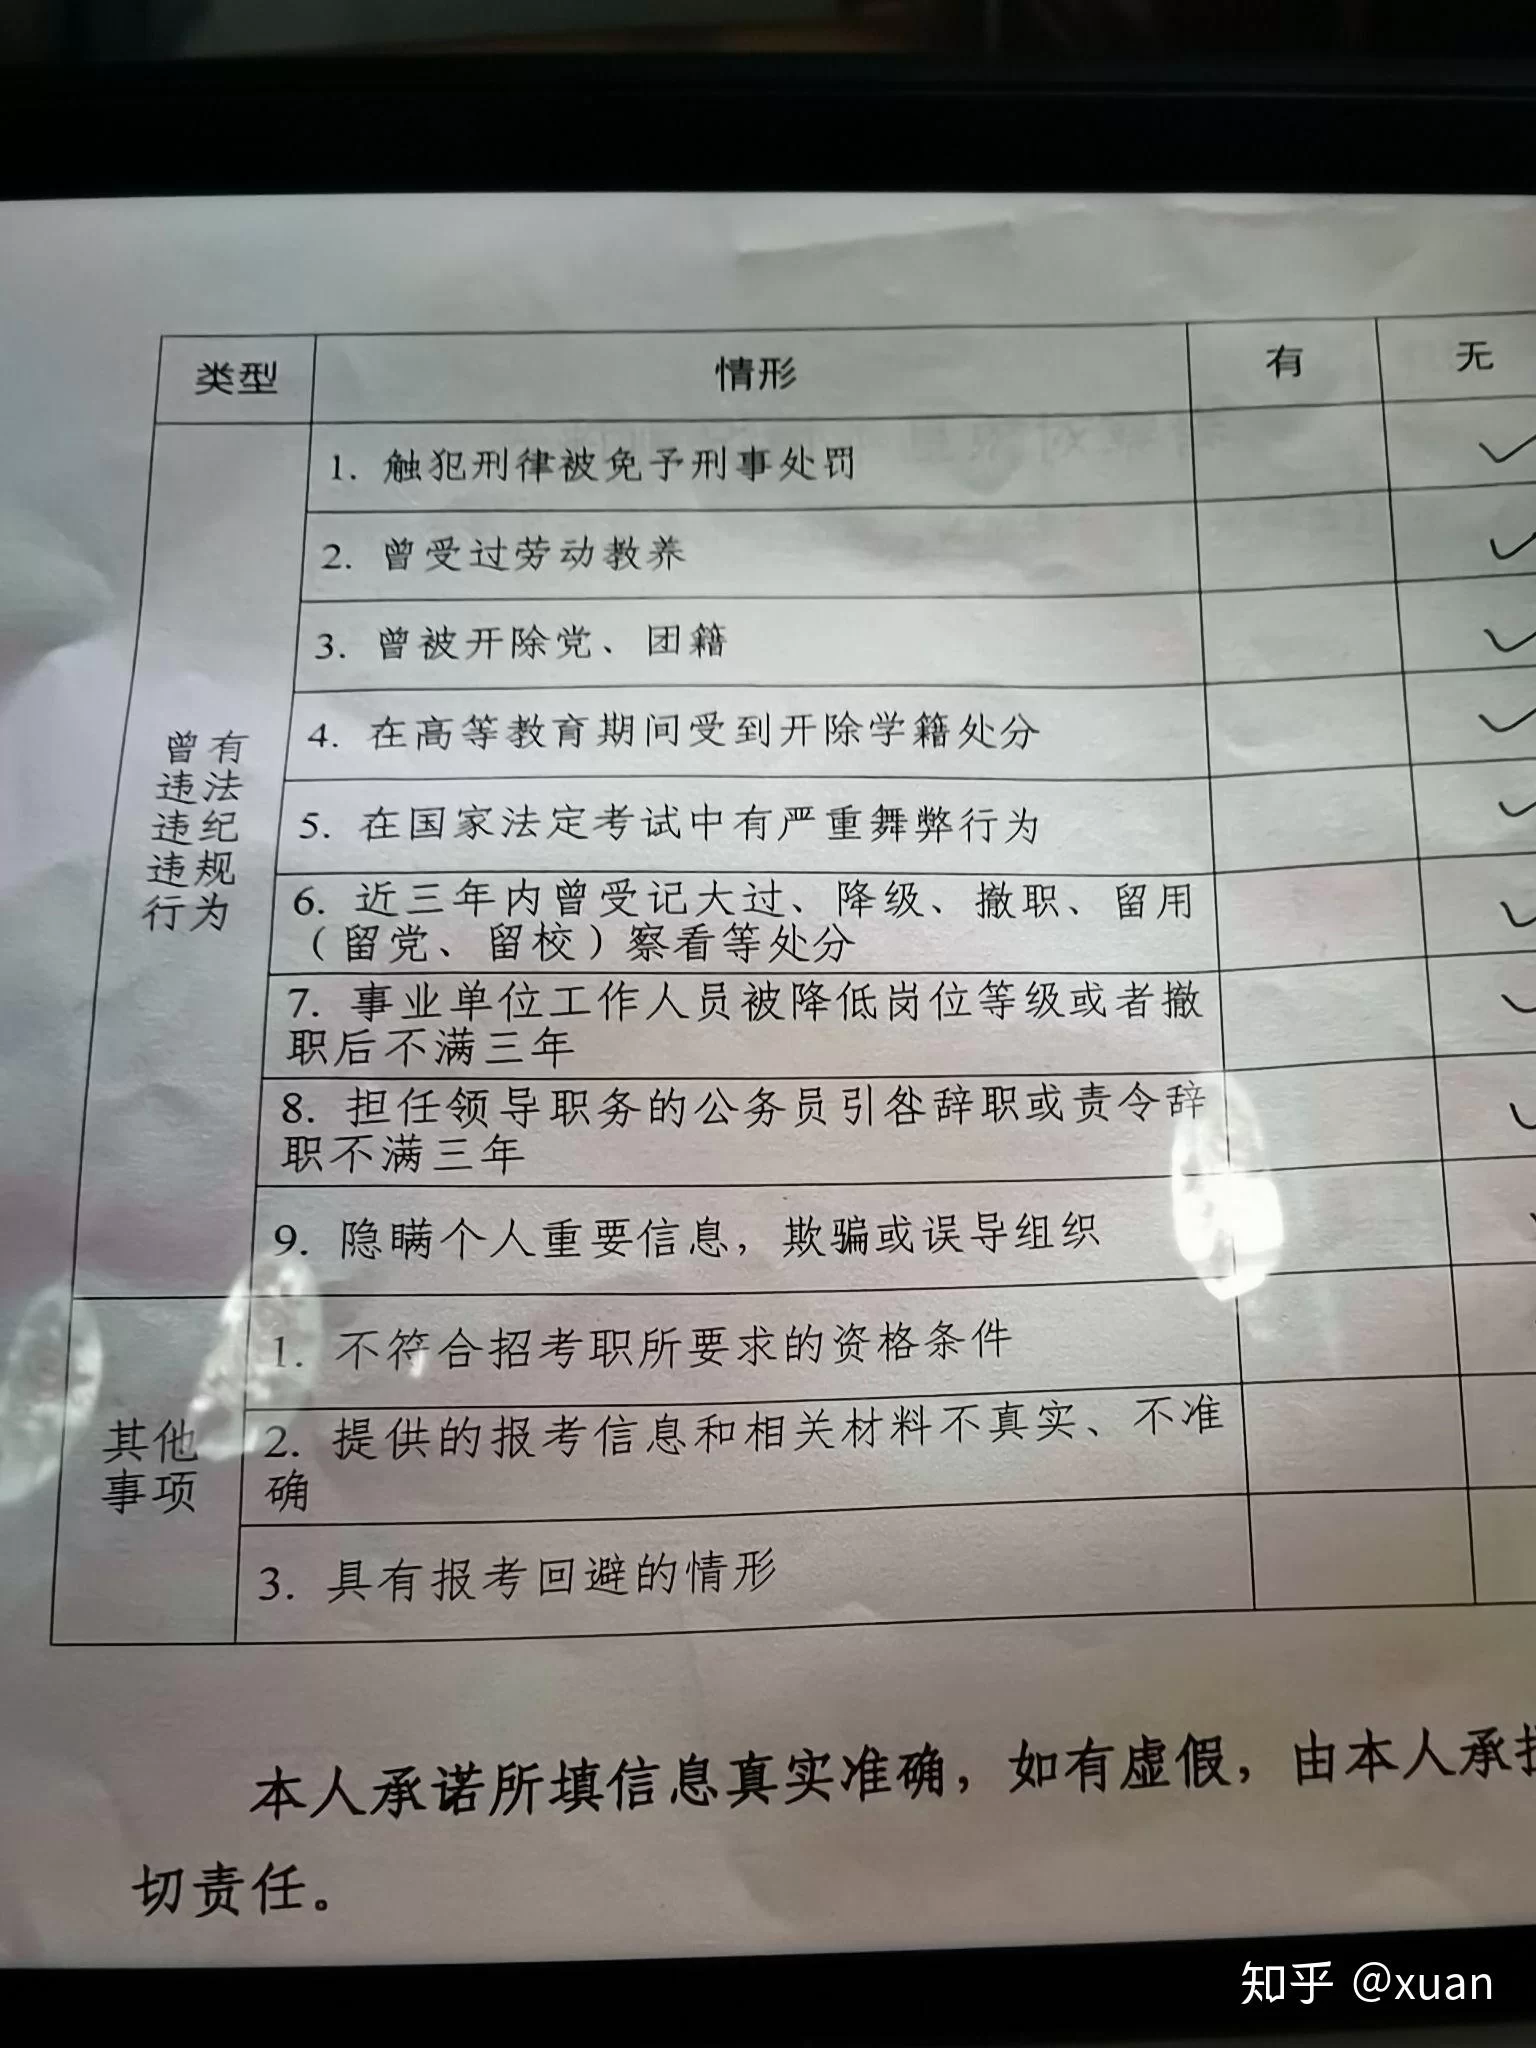 类型 情形 有 无
曾有
违法
违纪
违规
行为
1. 触犯刑律被免予刑事处罚 ✓
2. 曾受过劳动教养 ✓
3. 曾被开除党、团籍 ✓
4. 在高等教育期间受到开除学籍处分 ✓
5. 在国家法定考试中有严重舞弊行为 ✓
6. 近三年内曾受记大过、降级、撤职、留用
（留党、留校）察看等处分 ✓
7. 事业单位工作人员被降低岗位等级或者撤
职后不满三年 ✓
8. 担任领导职务的公务员引咎辞职或责令辞
职不满三年 ✓
9. 隐瞒个人重要信息，欺骗或误导组织
其他
事项
1. 不符合招考职所要求的资格条件
2. 提供的报考信息和相关材料不真实、不准
确
3. 具有报考回避的情形
本人承诺所填信息真实准确，如有虚假，由本人承
切责任。
知乎 @xuan